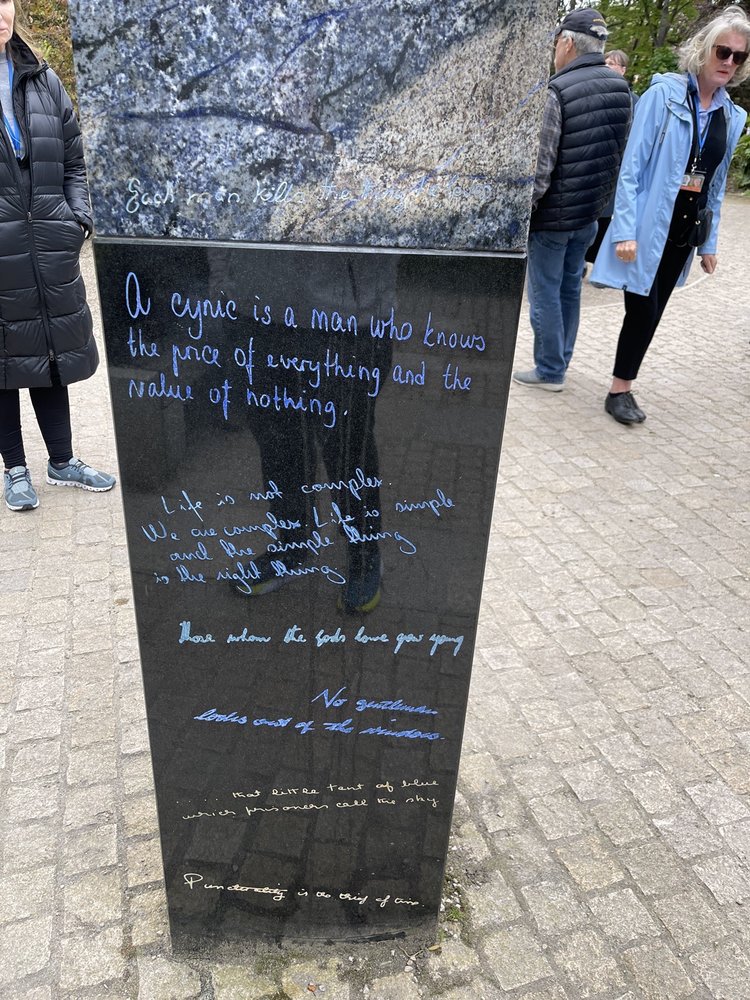 Each man kills the thing he loves
A cynic is a man who knows
the price of everything and the
value of nothing.
Life is not complex.
We are complex. Life is simple
and the simple thing
is the right thing
Those whom the gods love grow young
No gentleman
looks out of the window.
......that little tent of blue
which prisoners call the sky
Punctuality is the thief of time.